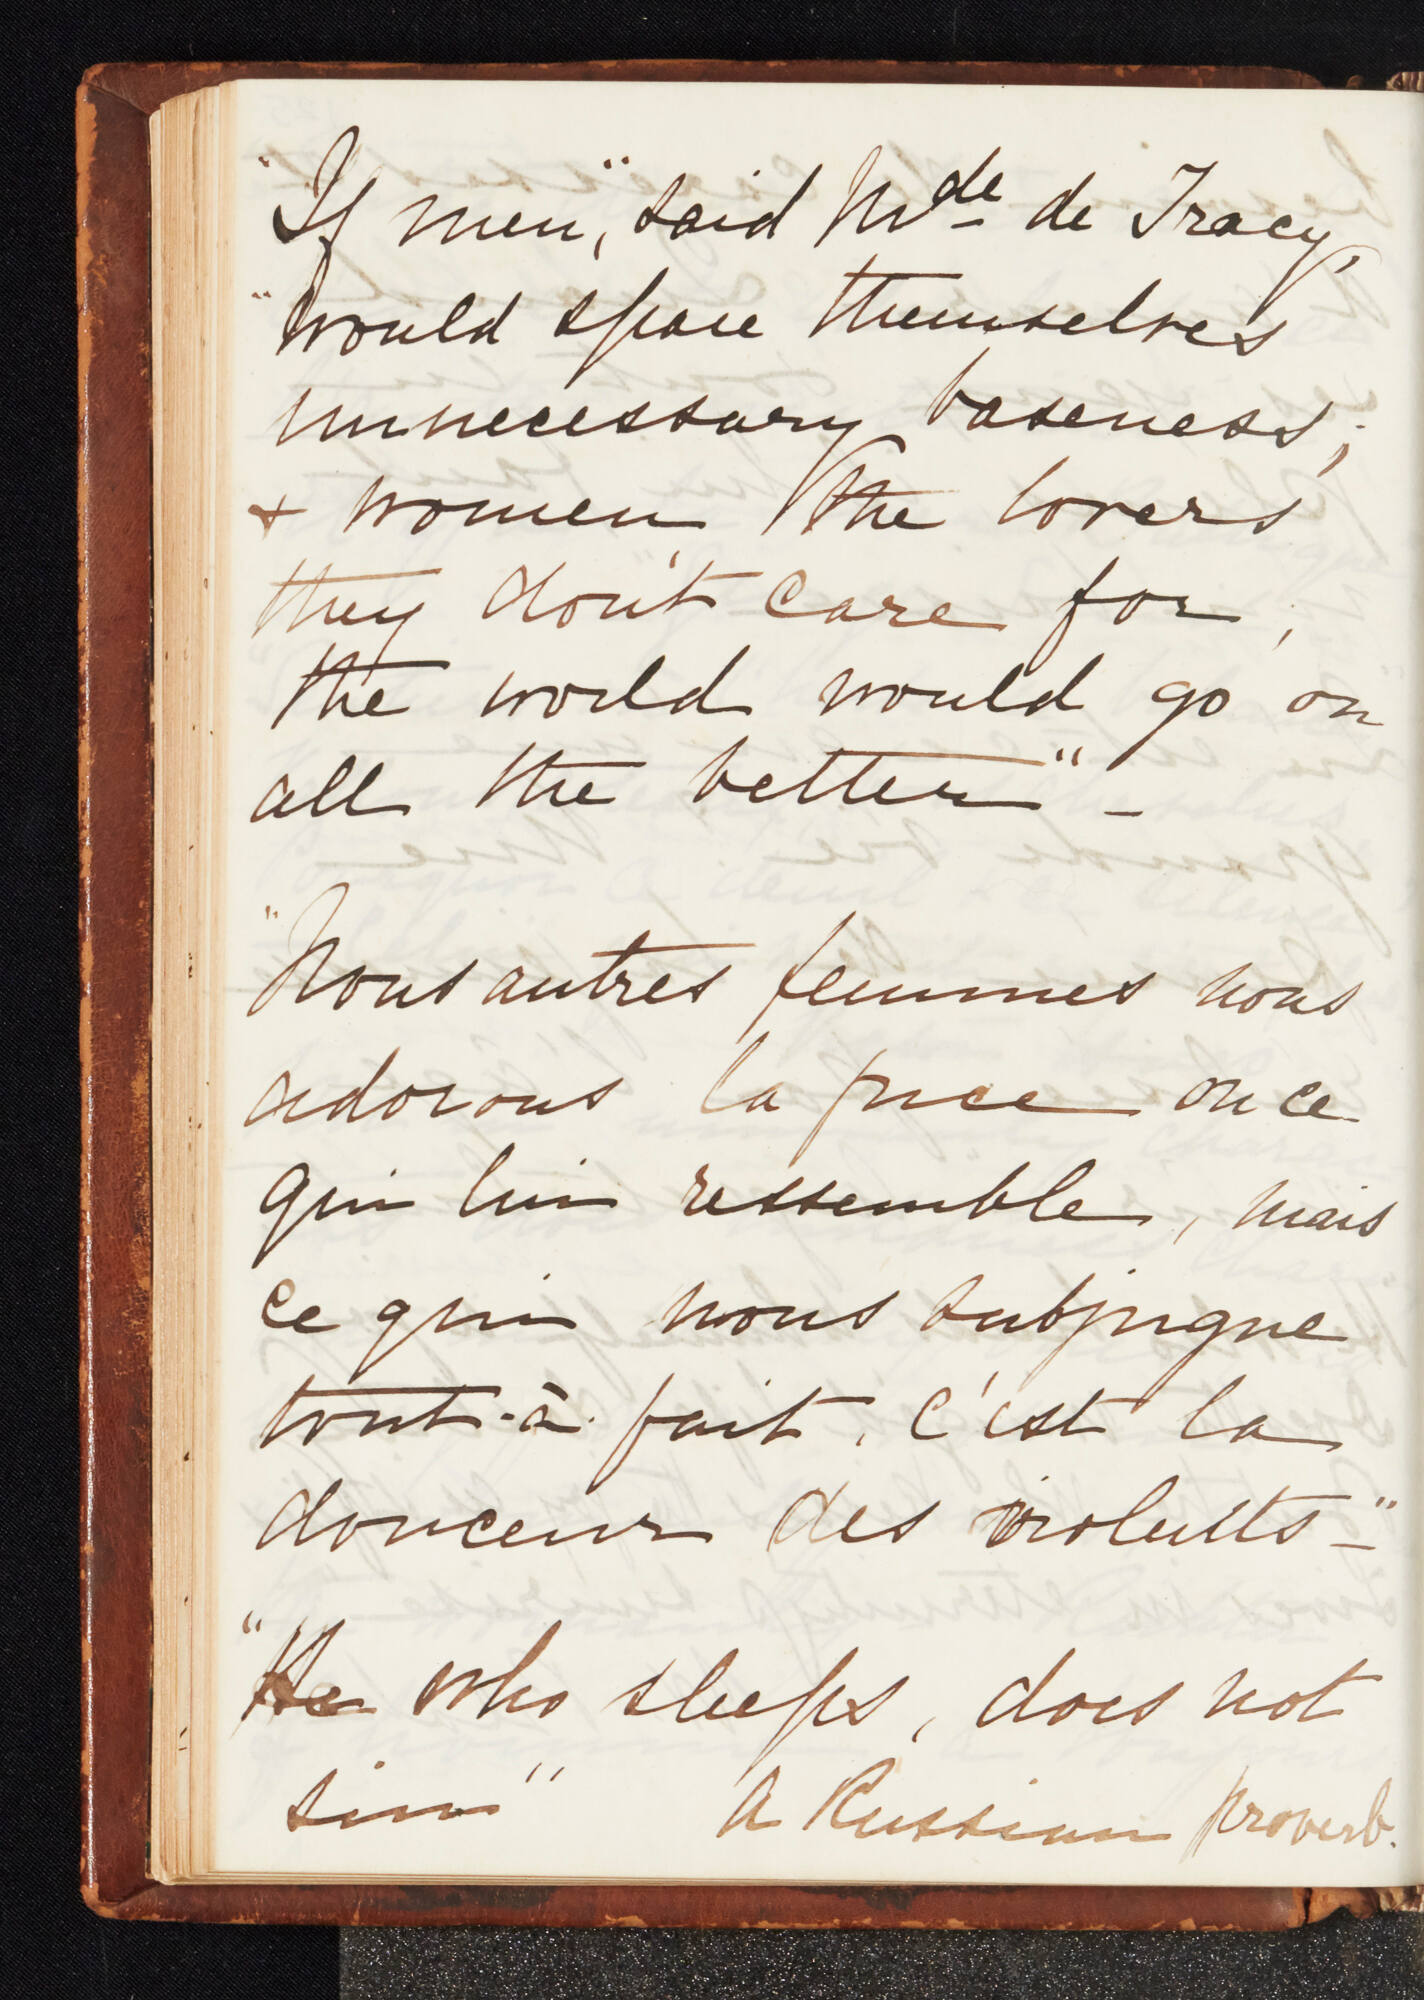 "If men", said Mde de Tracy,
"would spare themselves
unnecessary baseness;
+ women the lovers
they don't care for,
the world would go on
all the better" -
"Nous autres femmes nous
adorons la force on ce
qui lui ressemble, mais
ce qui nous subjugue
tout-à-fait, c'est la
douceur des violents -"
"He who sleeps, does not
sin" A Russian proverb.